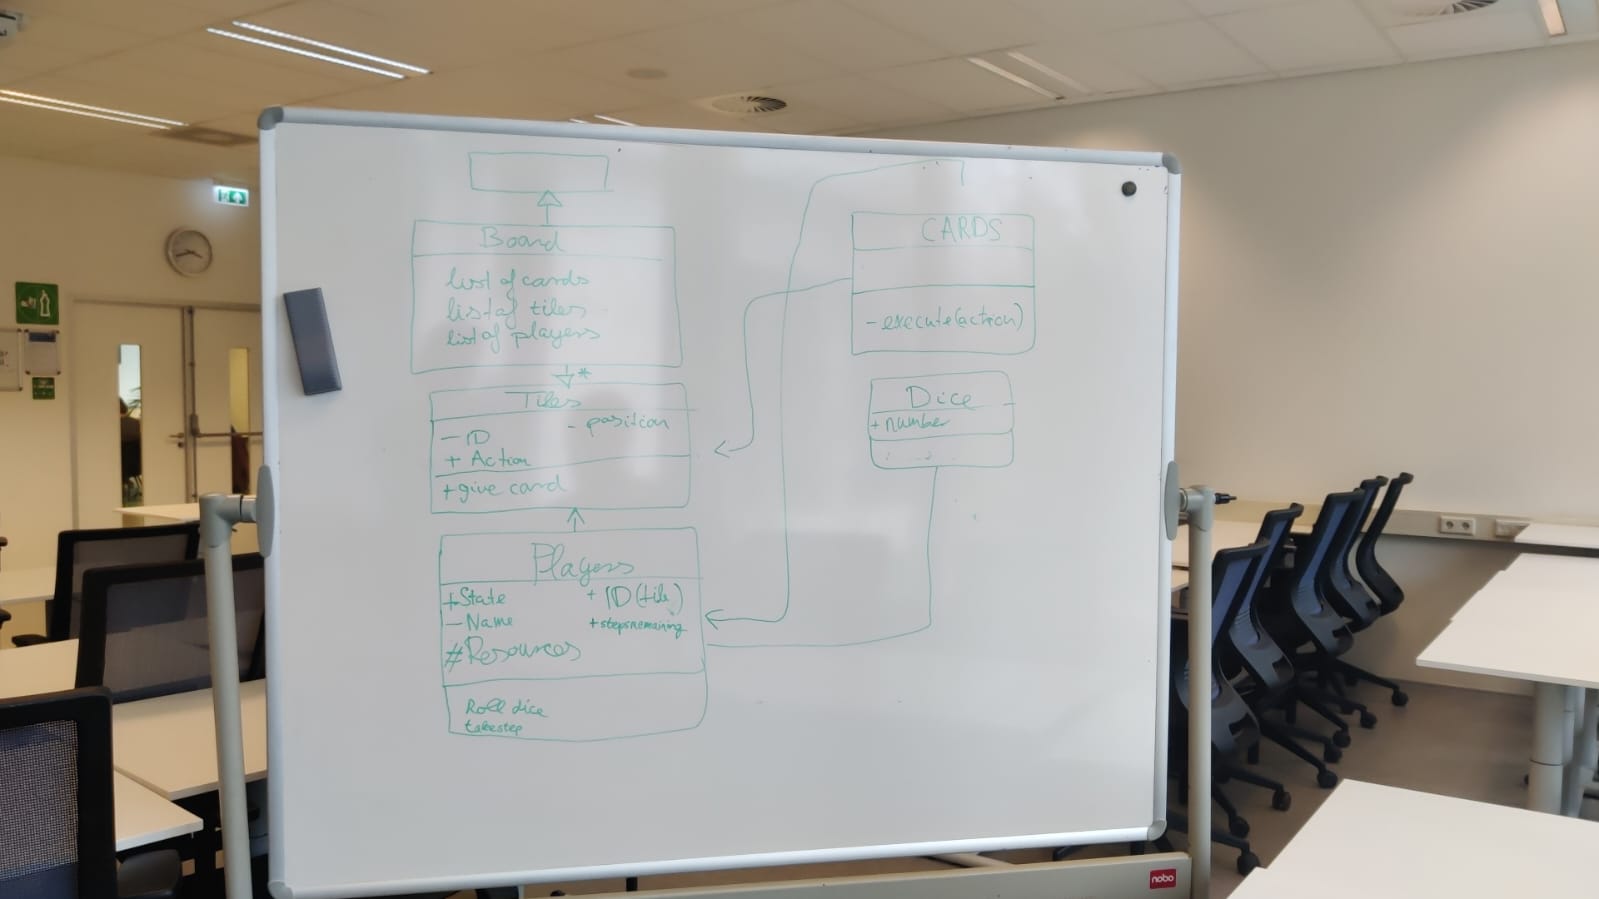 Board
list of cards
list of tiles
list of players
*
Tiles
- ID
- position
+ Action
+give card
Players
+State
+ ID(tile)
- Name
+stepsremaining
#Resources
Roll dice
takestep
CARDS
- execute(action)
Dice
+ number
nobo